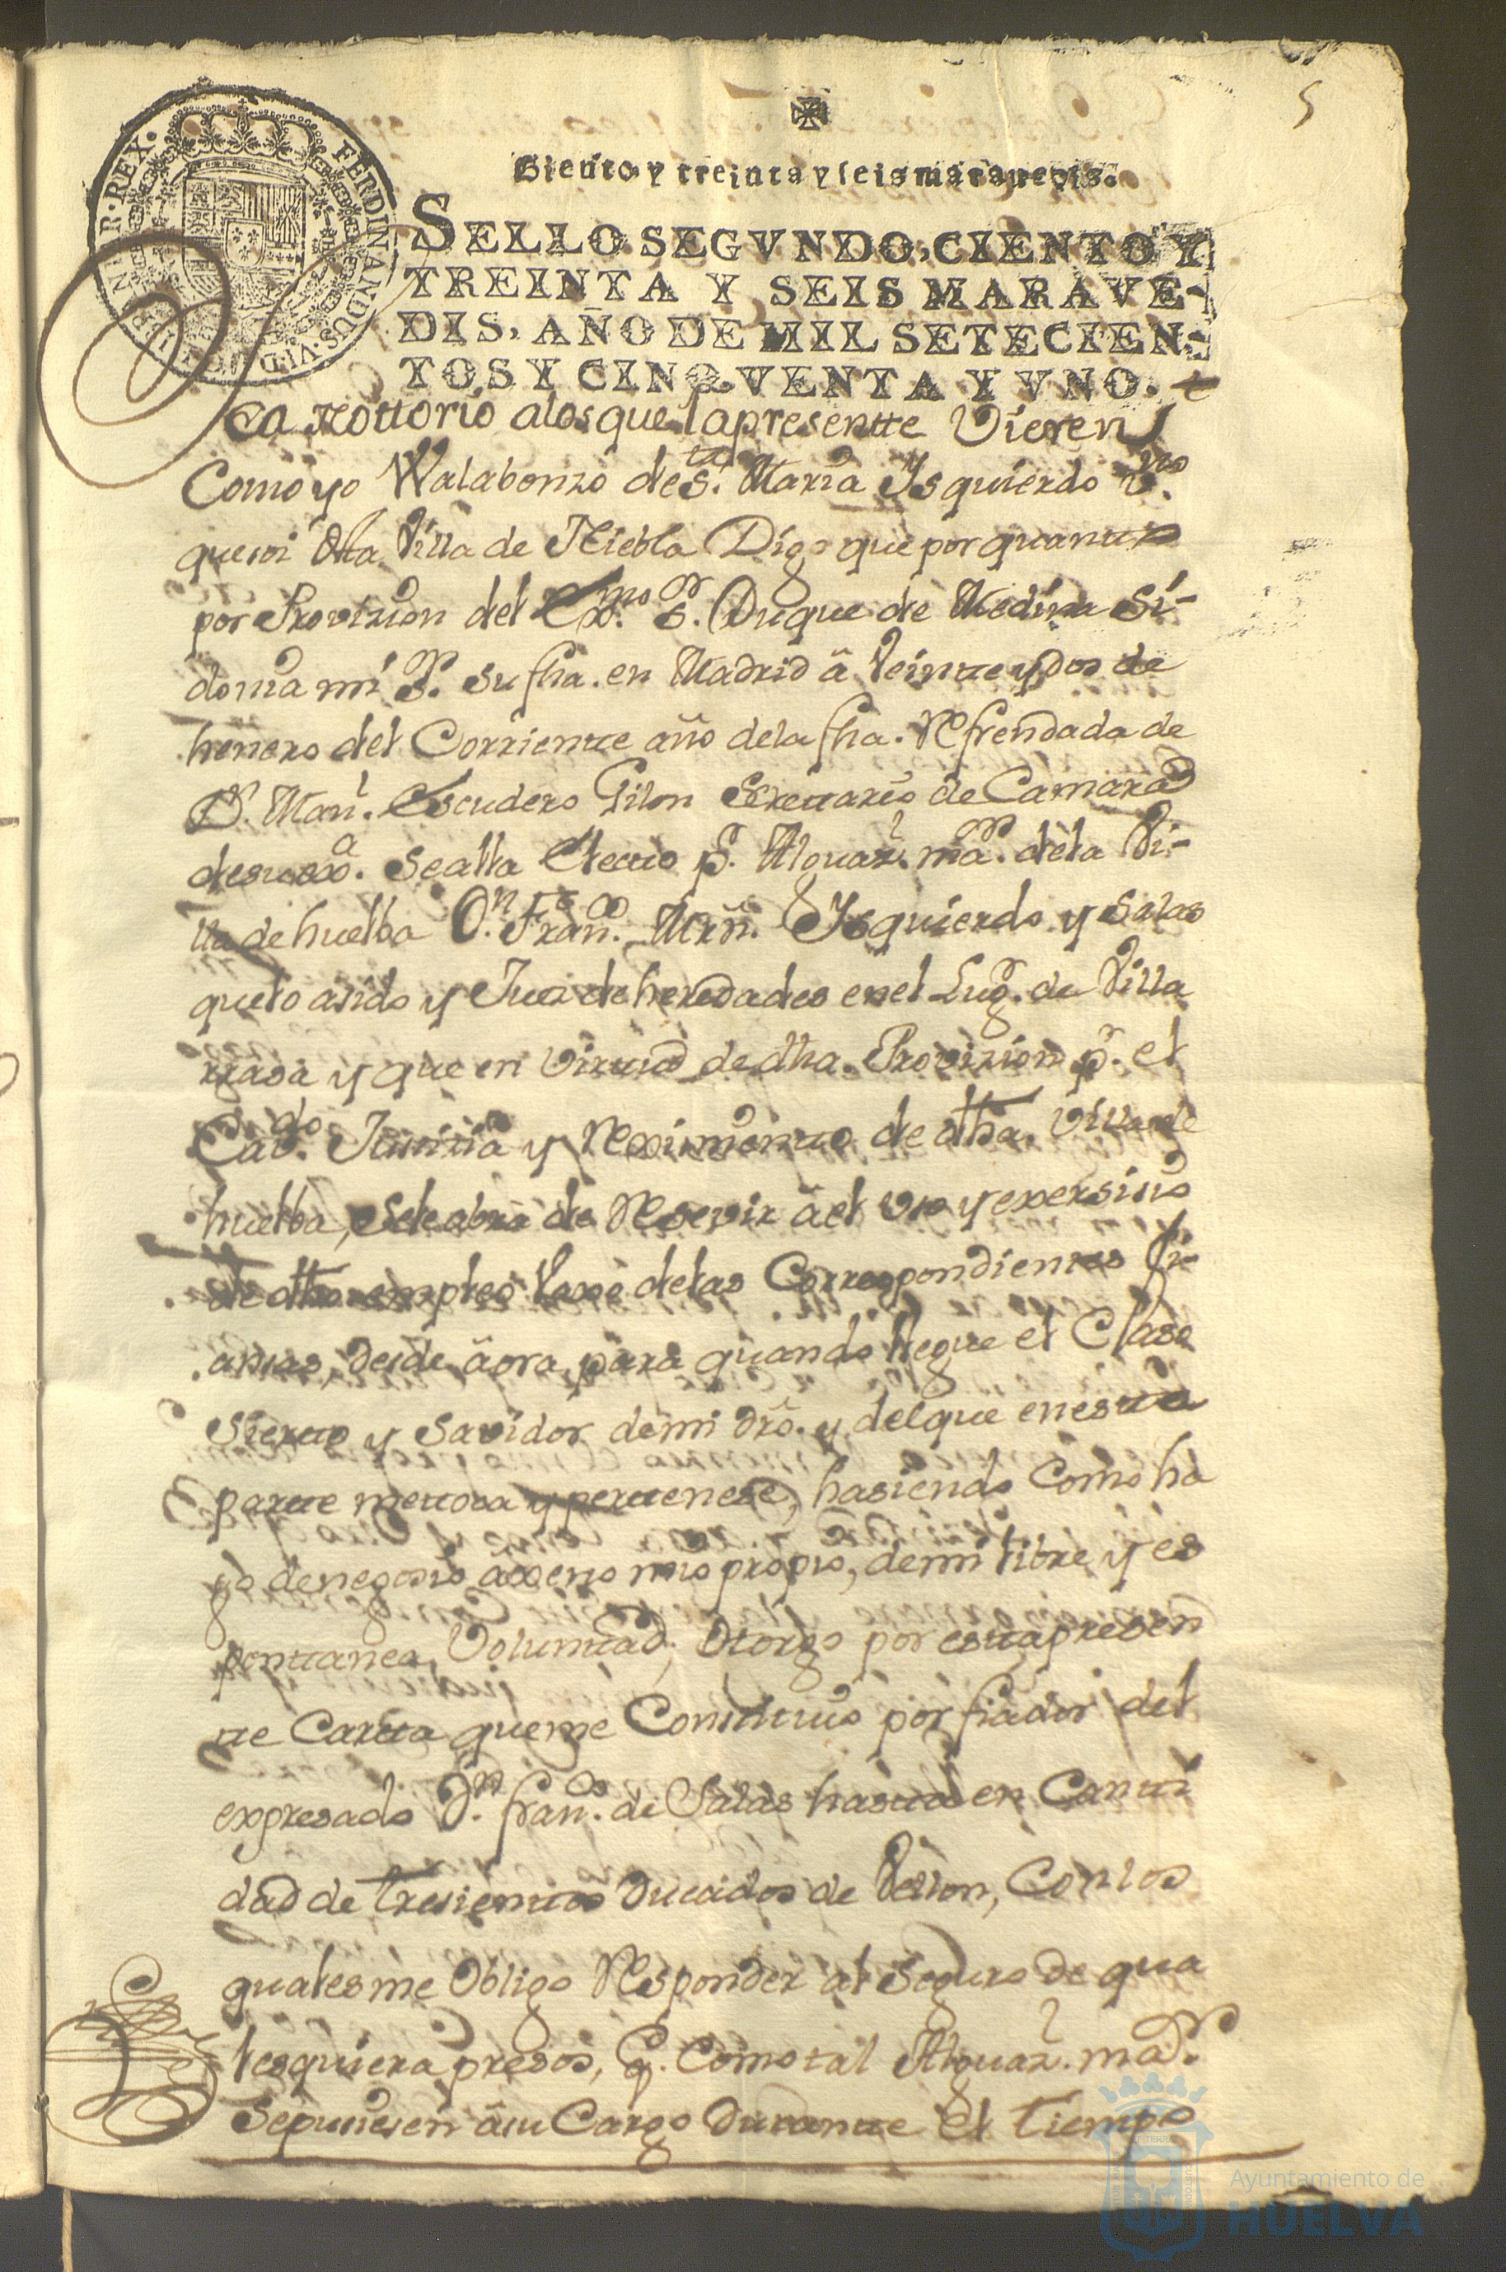 5
Ciento y treinta y seis maravedis.
SELLO SEGVNDO, CIENTO Y
TREINTA Y SEIS MARAVE-
DIS, AÑO DE MIL SETECIEN-
TOS Y CINQVENTA Y VNO.
FERDINANDUS. VI. D. G. HISPANIAR. REX.
Sea Nottorio alos que la presentte Vieren
Como yo Walabonzo de s.ta Maria Ysquierdo v.no
que soi dtta Villa de Niebla Digo que por quantto
por Provizion del Exmo. s.or Duque de Medina Si-
donia mi s.or su fha. en Madrid â Veintte y dos de
henero del Corrientte año de la fha. Refrendada de
D.n Man.l Escudero Gilon Secrettario de Camara
de su ex.a se alla Electto p.r Alguaz.l ma.or de la Vi-
lla de huelba D.n Fran.co Mrñ. Ysquierdo y Salas
que lo a sido y Juez de heredades en el Lug.r de Villa
rrasa y que en Virttud de dha. Provizion p.r el
Cav.do Justtizia y Reximientto de dtha. Villa de
huelba, se le abra de Resevir â el Uso y exersisio
de dtho empleo Vaxo de las Correspondienttes fi-
ansas, desde âora para quando llegue el Caso
Siertto y Savidor de mi dro. y del que en estta
partte me ttoca y perttenese, hasiendo Como ha
go de negosio âxeno mio propio, de mi libre y es
ponttanea Volunttad; Otorgo por estta presen
tte Cartta que me Consttituio por fiador del
expresado D.n fran.co de Salas hastta en Cantti
dad de tresienttos Ducados de Vellon, Con los
quales me Obligo Responder al seguro de qua
lesquiera presos, q. Como tal Alguaz.l ma.or
se pusiesen â su Cargo Durantte el tiempo
Ayuntamiento de
HUELVA